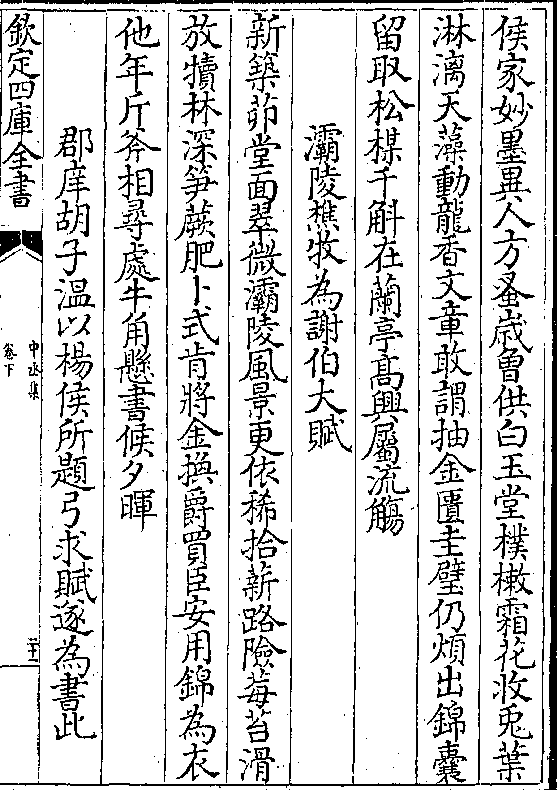 侯家妙墨異人方蚤嵗曽供白玉堂樸樕霜花收兎葉
淋漓天藻動龍香文章敢謂抽金匱圭璧仍煩出錦囊
留取松楳千斛在蘭亭髙興屬流觴
灞陵樵牧為謝伯大賦
新築茆堂面翠微灞陵風景更依稀拾薪路險莓苔滑
放犢林深笋蕨肥卜式肯將金換爵買臣安用錦為衣
他年斤斧相尋處牛角懸書候夕暉
郡庠胡子温以楊侯所題弓求賦遂為書此
欽定四庫全書
中丞集
卷下